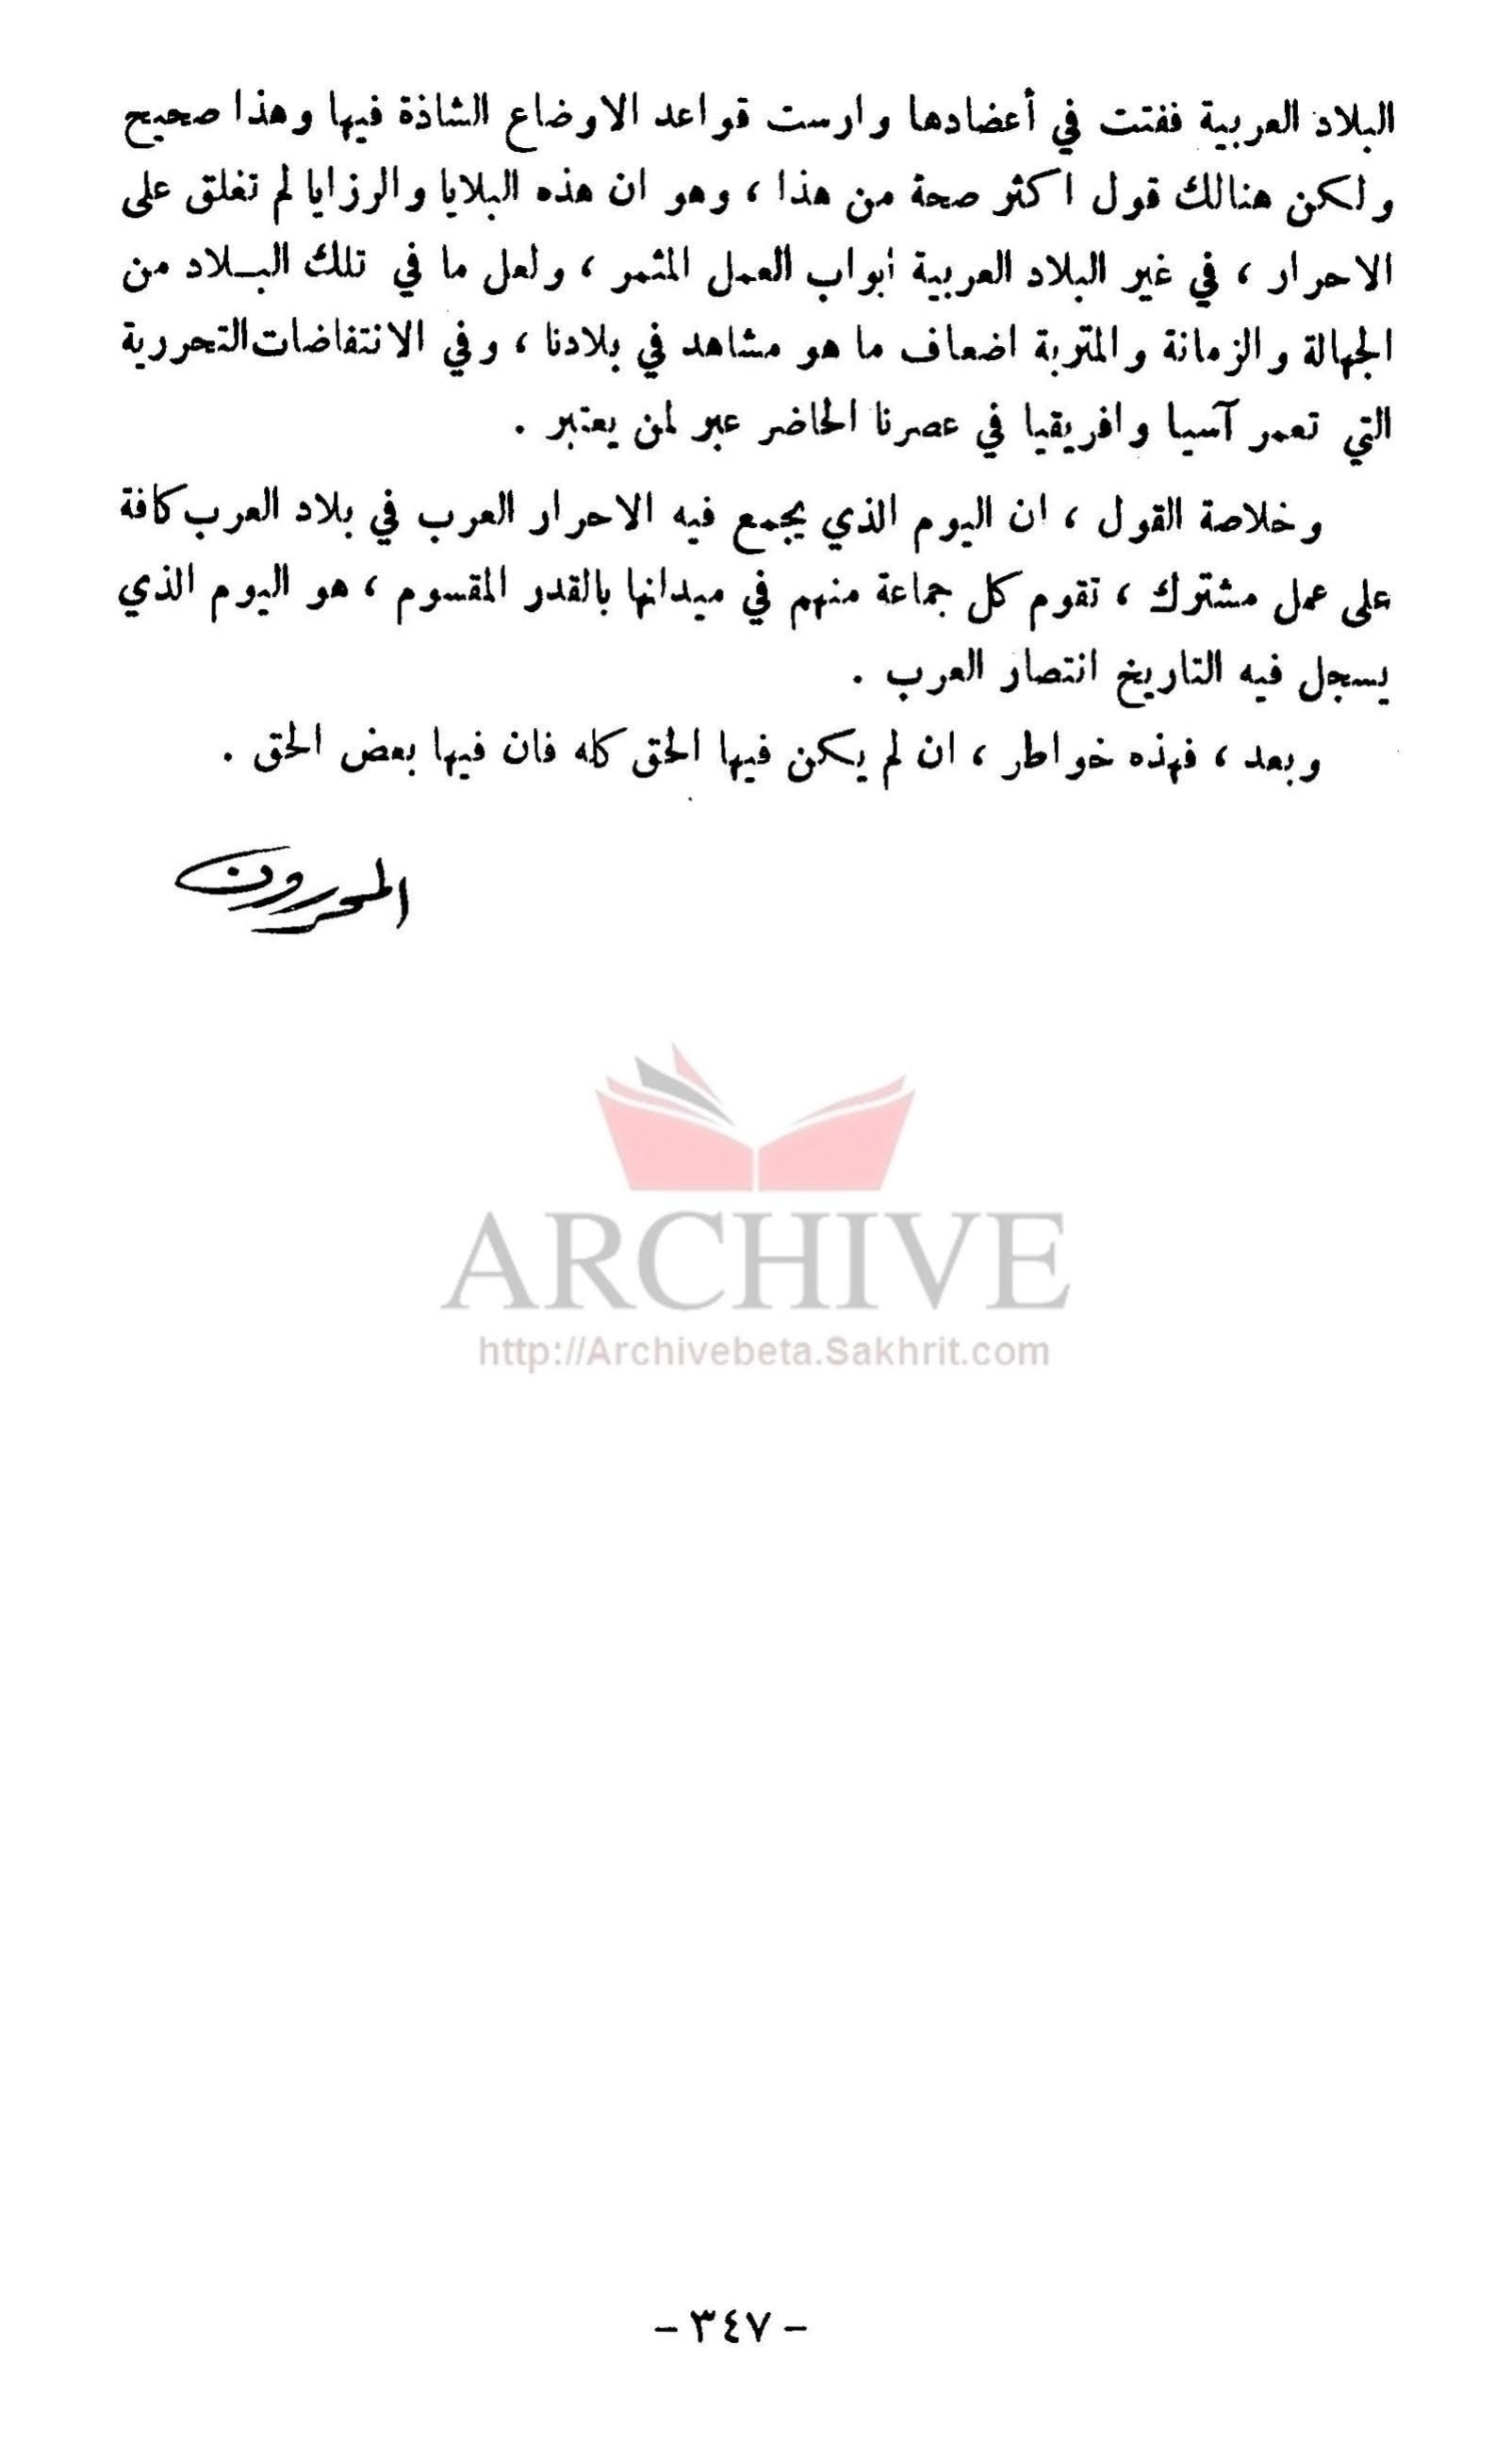 البلاد العربية ففتت في أعضادها وارست قواعد الاوضاع الشاذة فيها وهذا صحيح
ولكن هنالك قول اكثر صحة من هذا ، وهو ان هذه البلايا والرزايا لم تغلق على
الاحرار ، في غير البلاد العربية أبواب العمل المثمر ، ولعل ما في تلك البـلاد من
الجهالة والزمانة والمتربة اضعاف ما هو مشاهد في بلادنا ، وفي الانتفاضات التحررية
التي تعمر آسيا وافريقيا في عصرنا الحاضر عبر لمن يعتبر .
وخلاصة القول ، ان اليوم الذي يجمع فيه الاحرار العرب في بلاد العرب كافة
على عمل مشترك ، تقوم كل جماعة منهم في ميدانها بالقدر المقسوم ، هو اليوم الذي
يسجل فيه التاريخ انتصار العرب .
وبعد ، فهذه خواطر ، ان لم يكن فيها الحق كله فان فيها بعض الحق .
المحررون
ARCHIVE
http://Archivebeta.Sakhrit.com
- ٣٤٧ -